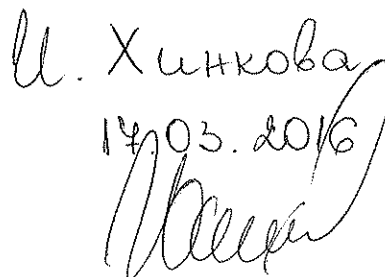 И. Хинкова
17.03.2016